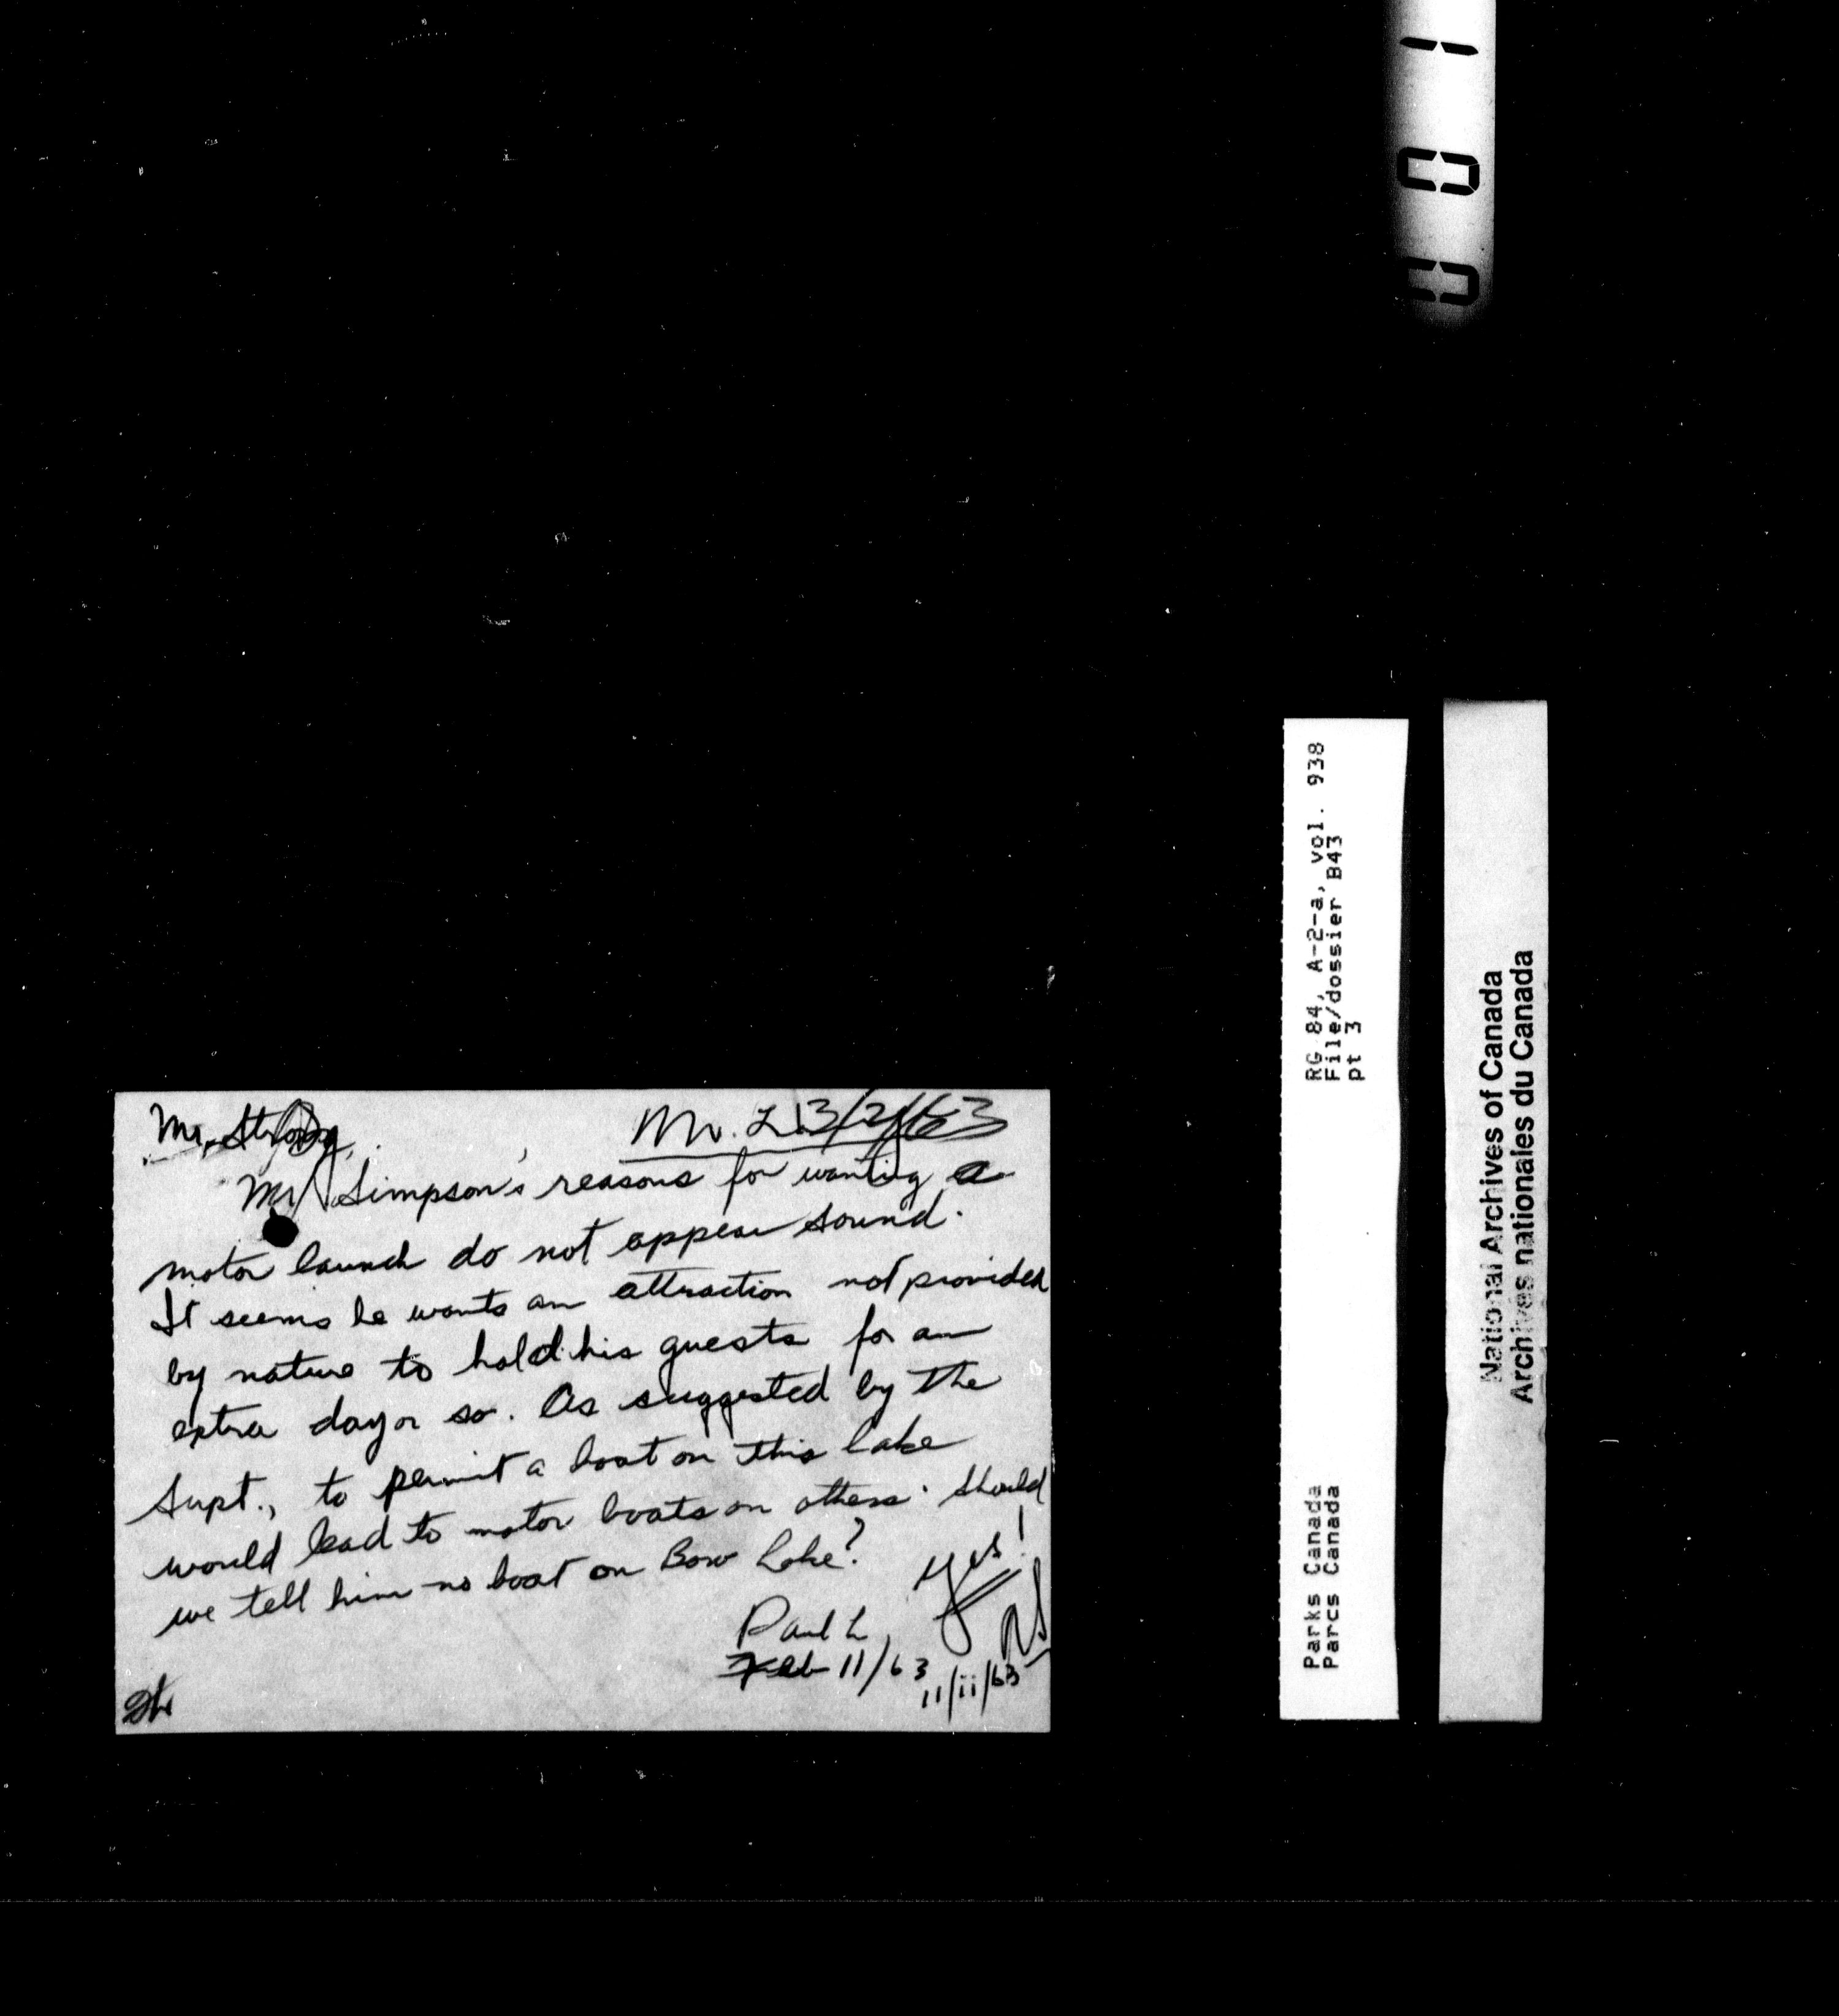 Mr. Strong.
Mr. L 13/2/63
Mr Simpson's reasons for wanting a
motor launch do not appear sound.
It seems he wants an attraction not provided
by nature to hold his guests for an
extra day or so. As suggested by the
Supt., to permit a boat on this lake
would lead to motor boats on others. Should
we tell him no boat on Bow Lake?
Yes!
Paul L
Feb 11/63
11/ii/63
RG 84, A-2-a, vol. 938
File/dossier B43
pt 3
Parks Canada
Parcs Canada
National Archives of Canada
Archives nationales du Canada
001